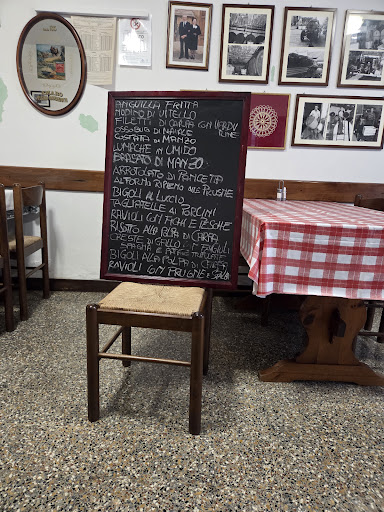 ANGUILLA FRITTA
NODINO DI VITELLO
FILETTI DI CARPA CON VERDURINE
OSSOBUCO DI MAIALE
COSTATA DI MANZO
LUMACHE IN UMIDO
BRASATO DI MANZO
ARROTOLATO DI PANCETA
AL FORNO RIPIENO ALLE PRUGNE
BIGOLI AL LUCCIO
TAGLIATELLE AI PORCINI
RAVIOLI CON FICHI E PESCHE
RISOTTO ALLA POLPA DI CARPA
CRESTE DI GALLO
FAGIOLI
BIGOLI ALLA POLPA DI CARPA
RAVIOLI CON PRUGNE E